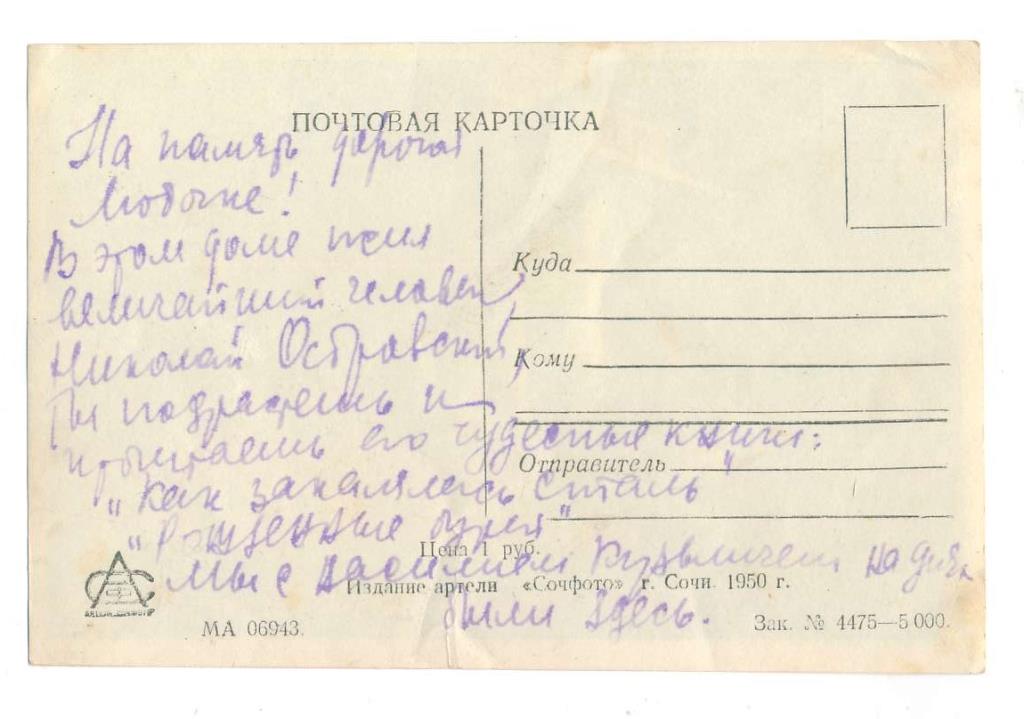 ПОЧТОВАЯ КАРТОЧКА
На память дорогой
Любочке!
В этом доме жил
величайший человек,
Николай Островский,
Ты подрастешь и
прочитаешь его чудесные книги:
"Как закалялась сталь"
"Рожденные бурей"
Мы с Василием Кузьмичем на днях
были здесь.
Куда
Кому
Отправитель
Цена 1 руб.
Издание артели «Сочфото» г. Сочи. 1950 г.
МА 06943.
Зак. № 4475—5 000.